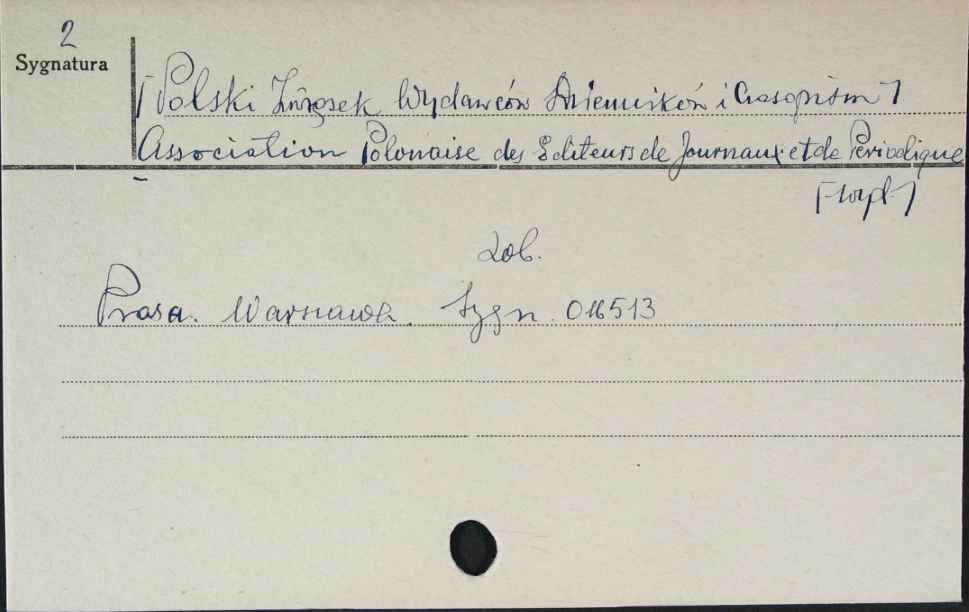 2
Sygnatura
[Polski Związek Wydawców Dzienników i Czasopism]
Association Polonaise des Editeurs de Journaux et de Périodique
[wyd.]
zob.
Prasa. Warszawa. Sygn. 016513